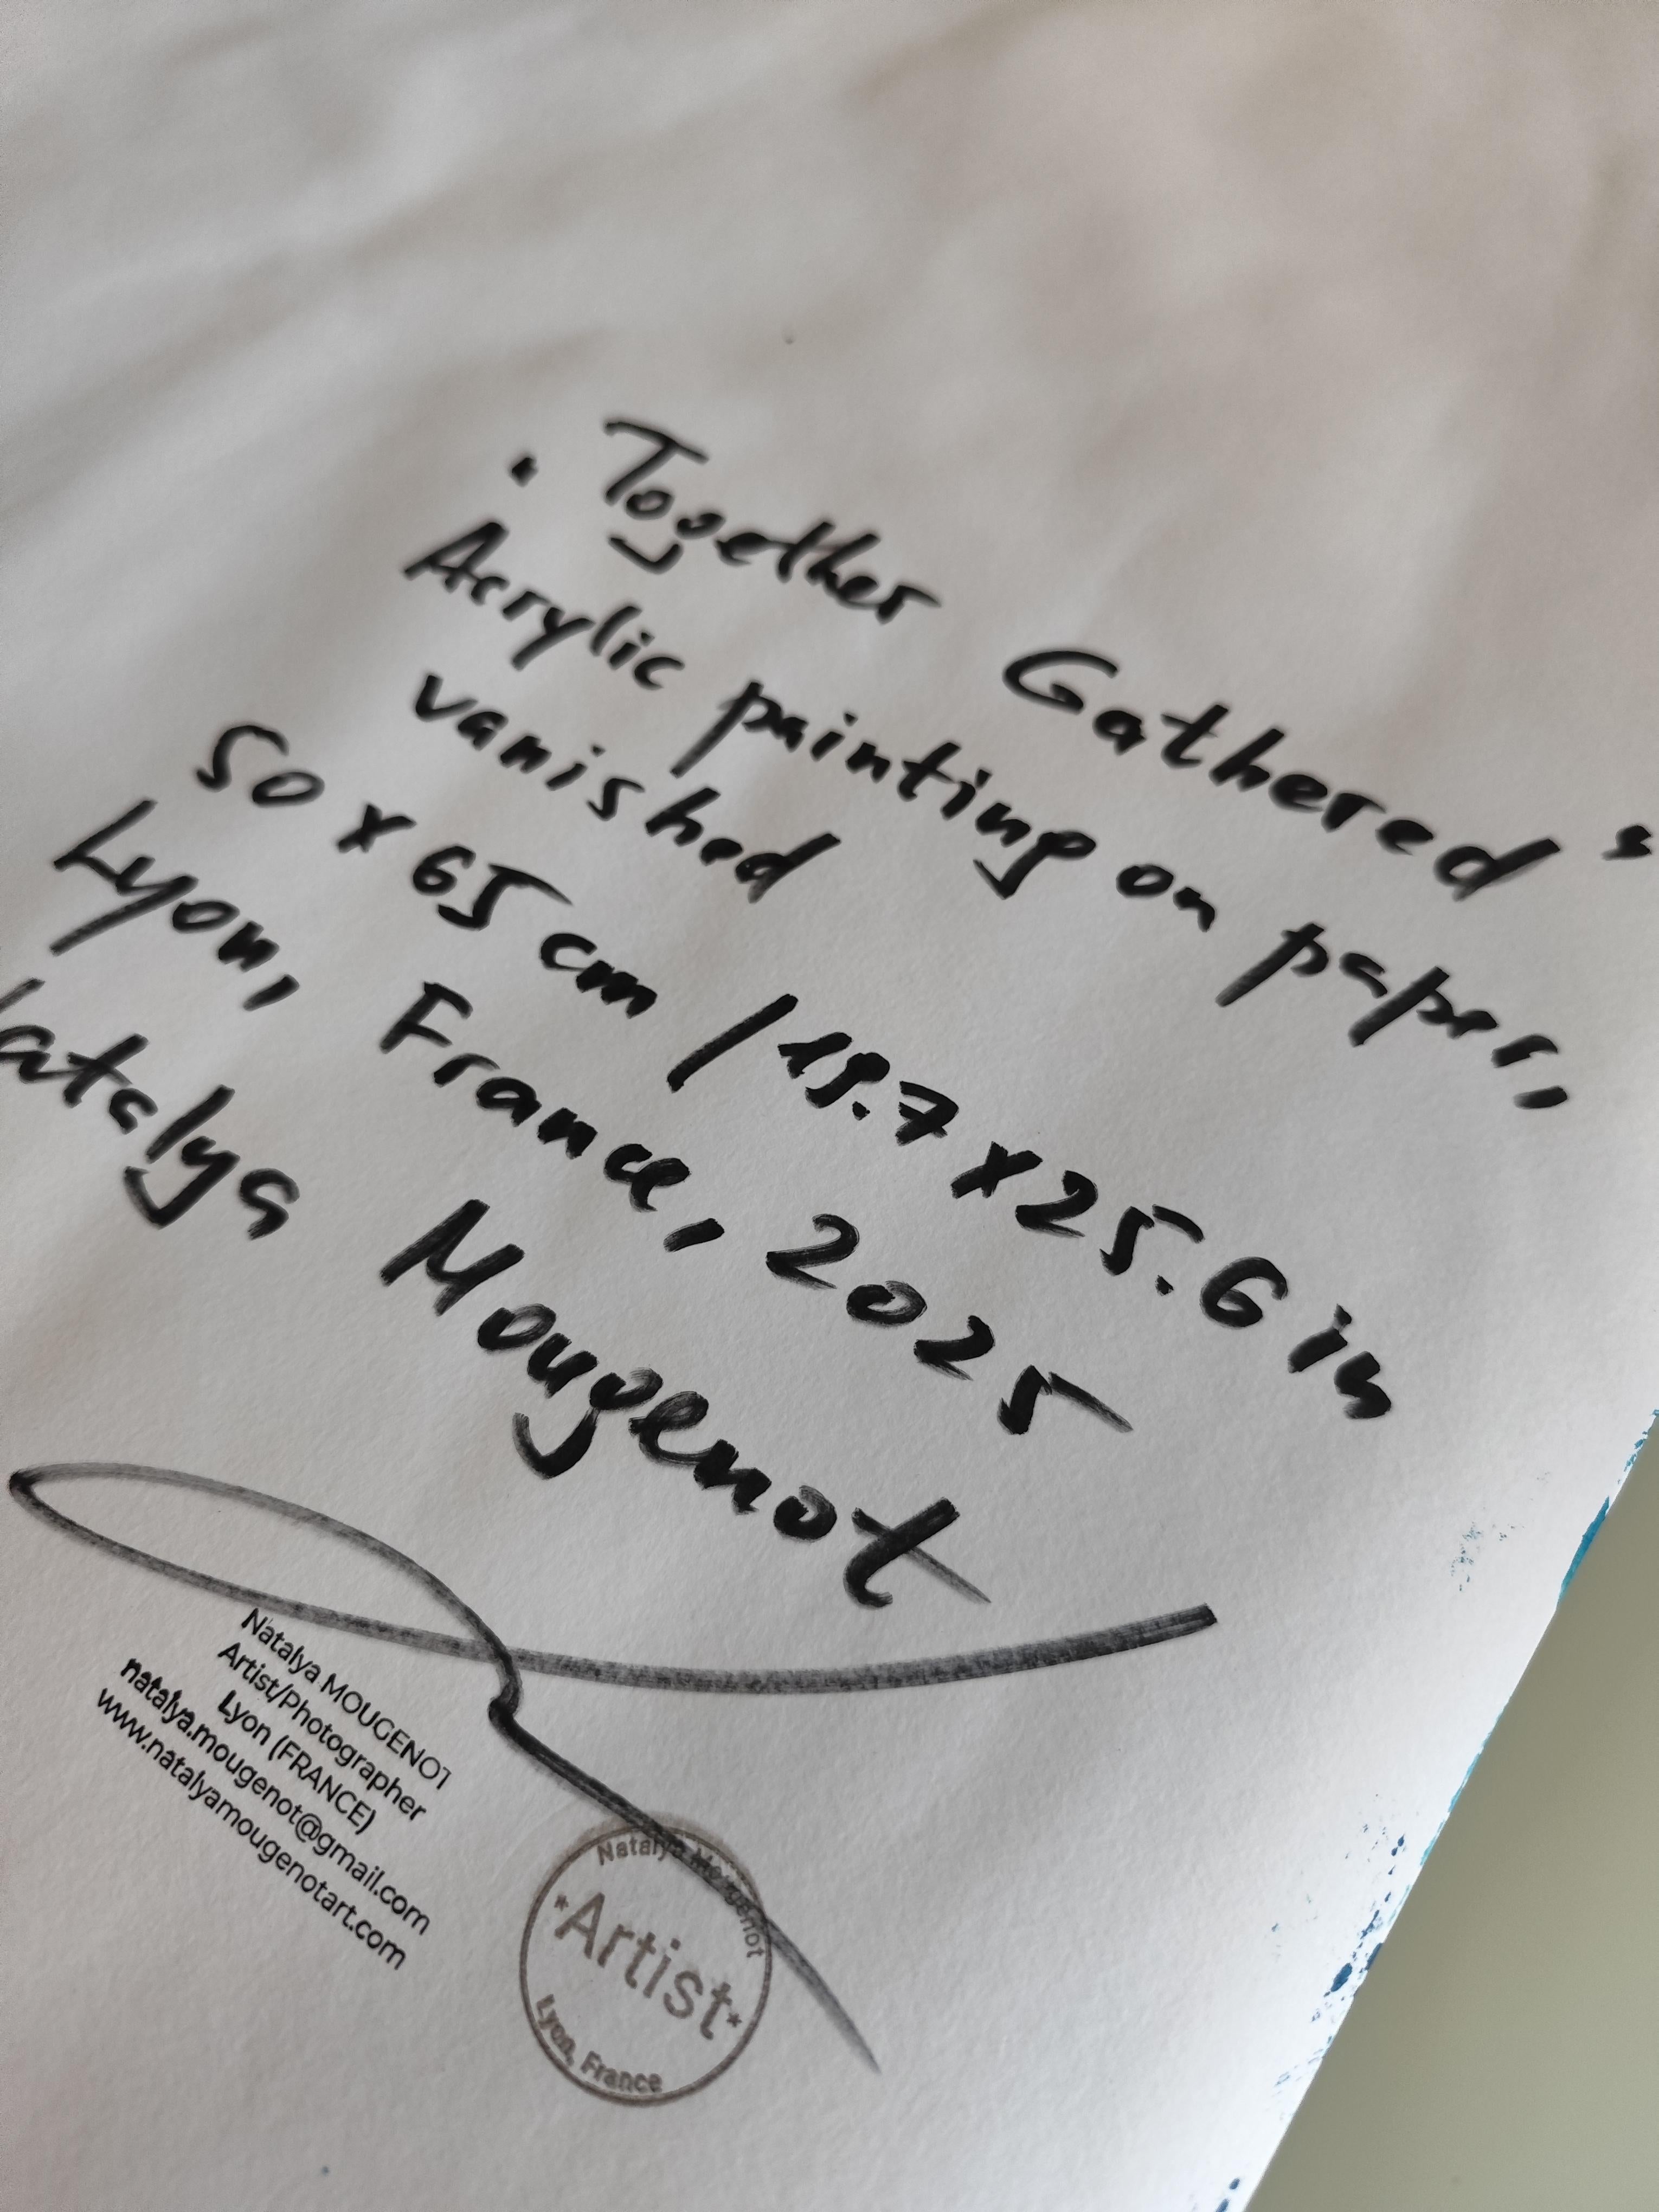 "Together Gathered"
Acrylic painting on paper,
vanished
50 x 65 cm / 19.7 x 25.6 in
Lyon, France, 2025
Natalya Mougenot
Natalya MOUGENOT
Artist/Photographer
Lyon (FRANCE)
natalya.mougenot@gmail.com
www.natalyamougenotart.com
Natalya Mougenot
*Artist*
Lyon, France